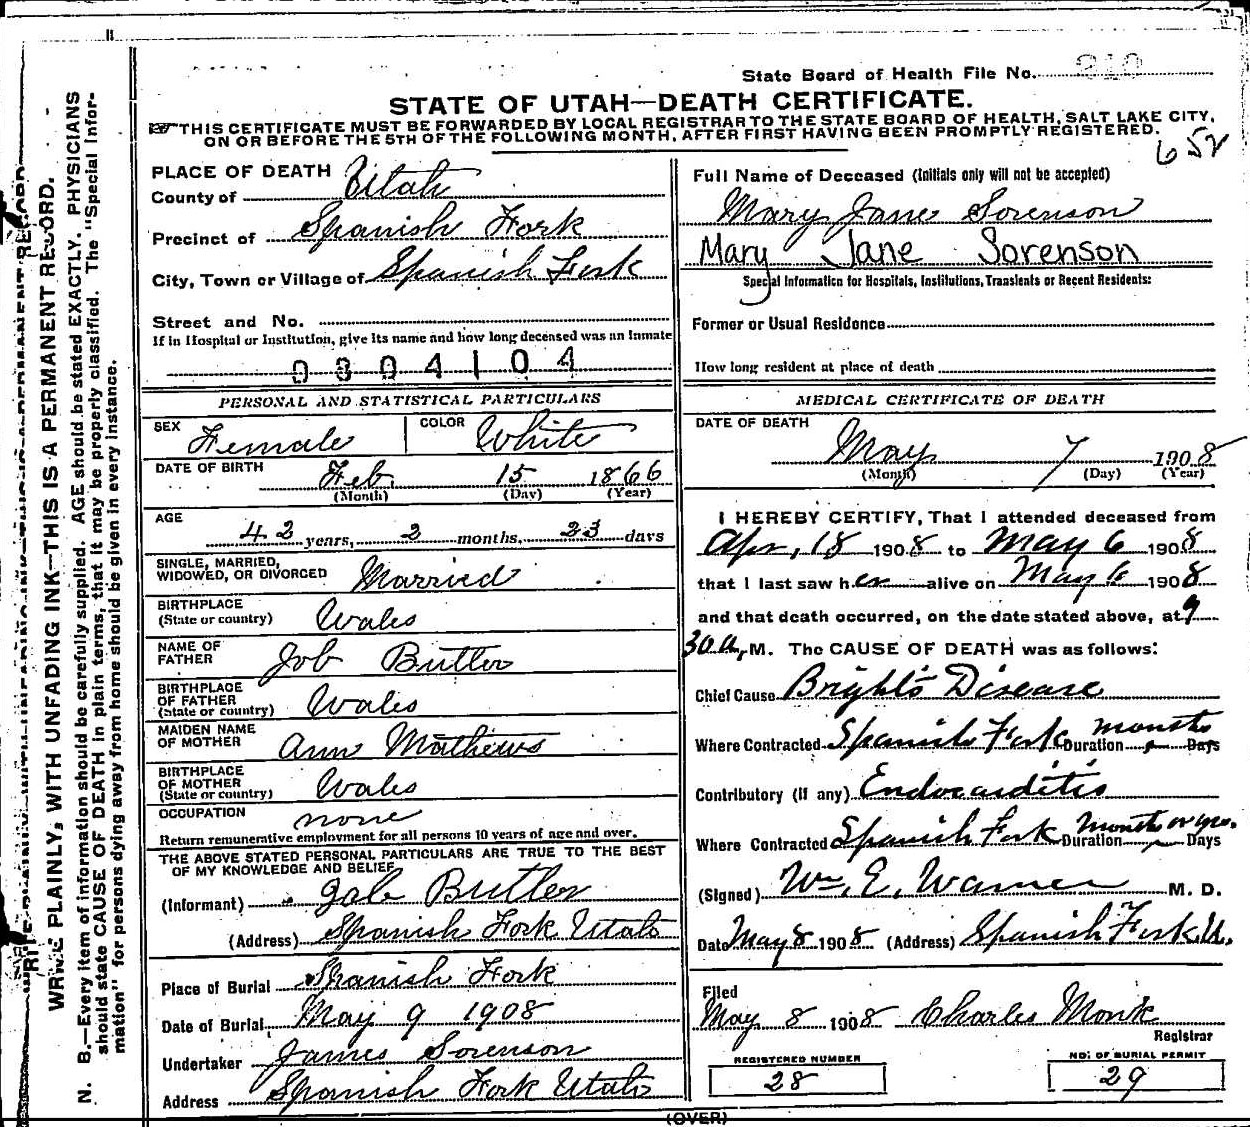 State Board of Health File No. 310
STATE OF UTAH—DEATH CERTIFICATE.
THIS CERTIFICATE MUST BE FORWARDED BY LOCAL REGISTRAR TO THE STATE BOARD OF HEALTH, SALT LAKE CITY,
ON OR BEFORE THE 5TH OF THE FOLLOWING MONTH, AFTER FIRST HAVING BEEN PROMPTLY REGISTERED.
652
WRITE PLAINLY, WITH UNFADING INK—THIS IS A PERMANENT RECORD.
N. B.—Every item of information should be carefully supplied. AGE should be stated EXACTLY. PHYSICIANS
should state CAUSE OF DEATH in plain terms, that it may be properly classified. The "Special Infor-
mation" for persons dying away from home should be given in every instance.
PLACE OF DEATH
County of Utah
Precinct of Spanish Fork
City, Town or Village of Spanish Fork
Street and No.
If in Hospital or Institution, give its name and how long deceased was an inmate
0304104
PERSONAL AND STATISTICAL PARTICULARS
SEX Female COLOR White
DATE OF BIRTH Feb. 15 1866
(Month) (Day) (Year)
AGE
42 years, 2 months, 23 days
SINGLE, MARRIED,
WIDOWED, OR DIVORCED Married
BIRTHPLACE
(State or country) Wales
NAME OF
FATHER Job Butler
BIRTHPLACE
OF FATHER
(State or country) Wales
MAIDEN NAME
OF MOTHER Ann Mathews
BIRTHPLACE
OF MOTHER
(State or country) Wales
OCCUPATION none
Return remunerative employment for all persons 10 years of age and over.
THE ABOVE STATED PERSONAL PARTICULARS ARE TRUE TO THE BEST
OF MY KNOWLEDGE AND BELIEF
(Informant) Job Butler
(Address) Spanish Fork Utah
Place of Burial Spanish Fork
Date of Burial May 9 1908
Undertaker James Sorenson
Address Spanish Fork Utah
Full Name of Deceased (Initials only will not be accepted)
Mary Jane Sorenson
Mary Jane Sorenson
Special Information for Hospitals, Institutions, Transients or Recent Residents:
Former or Usual Residence
How long resident at place of death
MEDICAL CERTIFICATE OF DEATH
DATE OF DEATH
May 7 1908
(Month) (Day) (Year)
I HEREBY CERTIFY, That I attended deceased from
Apr. 18 1908 to May 6 1908
that I last saw her alive on May 6 1908
and that death occurred, on the date stated above, at 9
30 A. M. The CAUSE OF DEATH was as follows:
Chief Cause Bright's Disease
Where Contracted Spanish Fork Duration months Days
Contributory (if any) Endocarditis
Where Contracted Spanish Fork Duration months or yrs. Days
(Signed) Wm. E. Warner M. D.
Date May 8 1908 (Address) Spanish Fork U.
Filed
May 8 1908 Charles Monk
Registrar
REGISTERED NUMBER
28
NO. OF BURIAL PERMIT
29
(OVER)